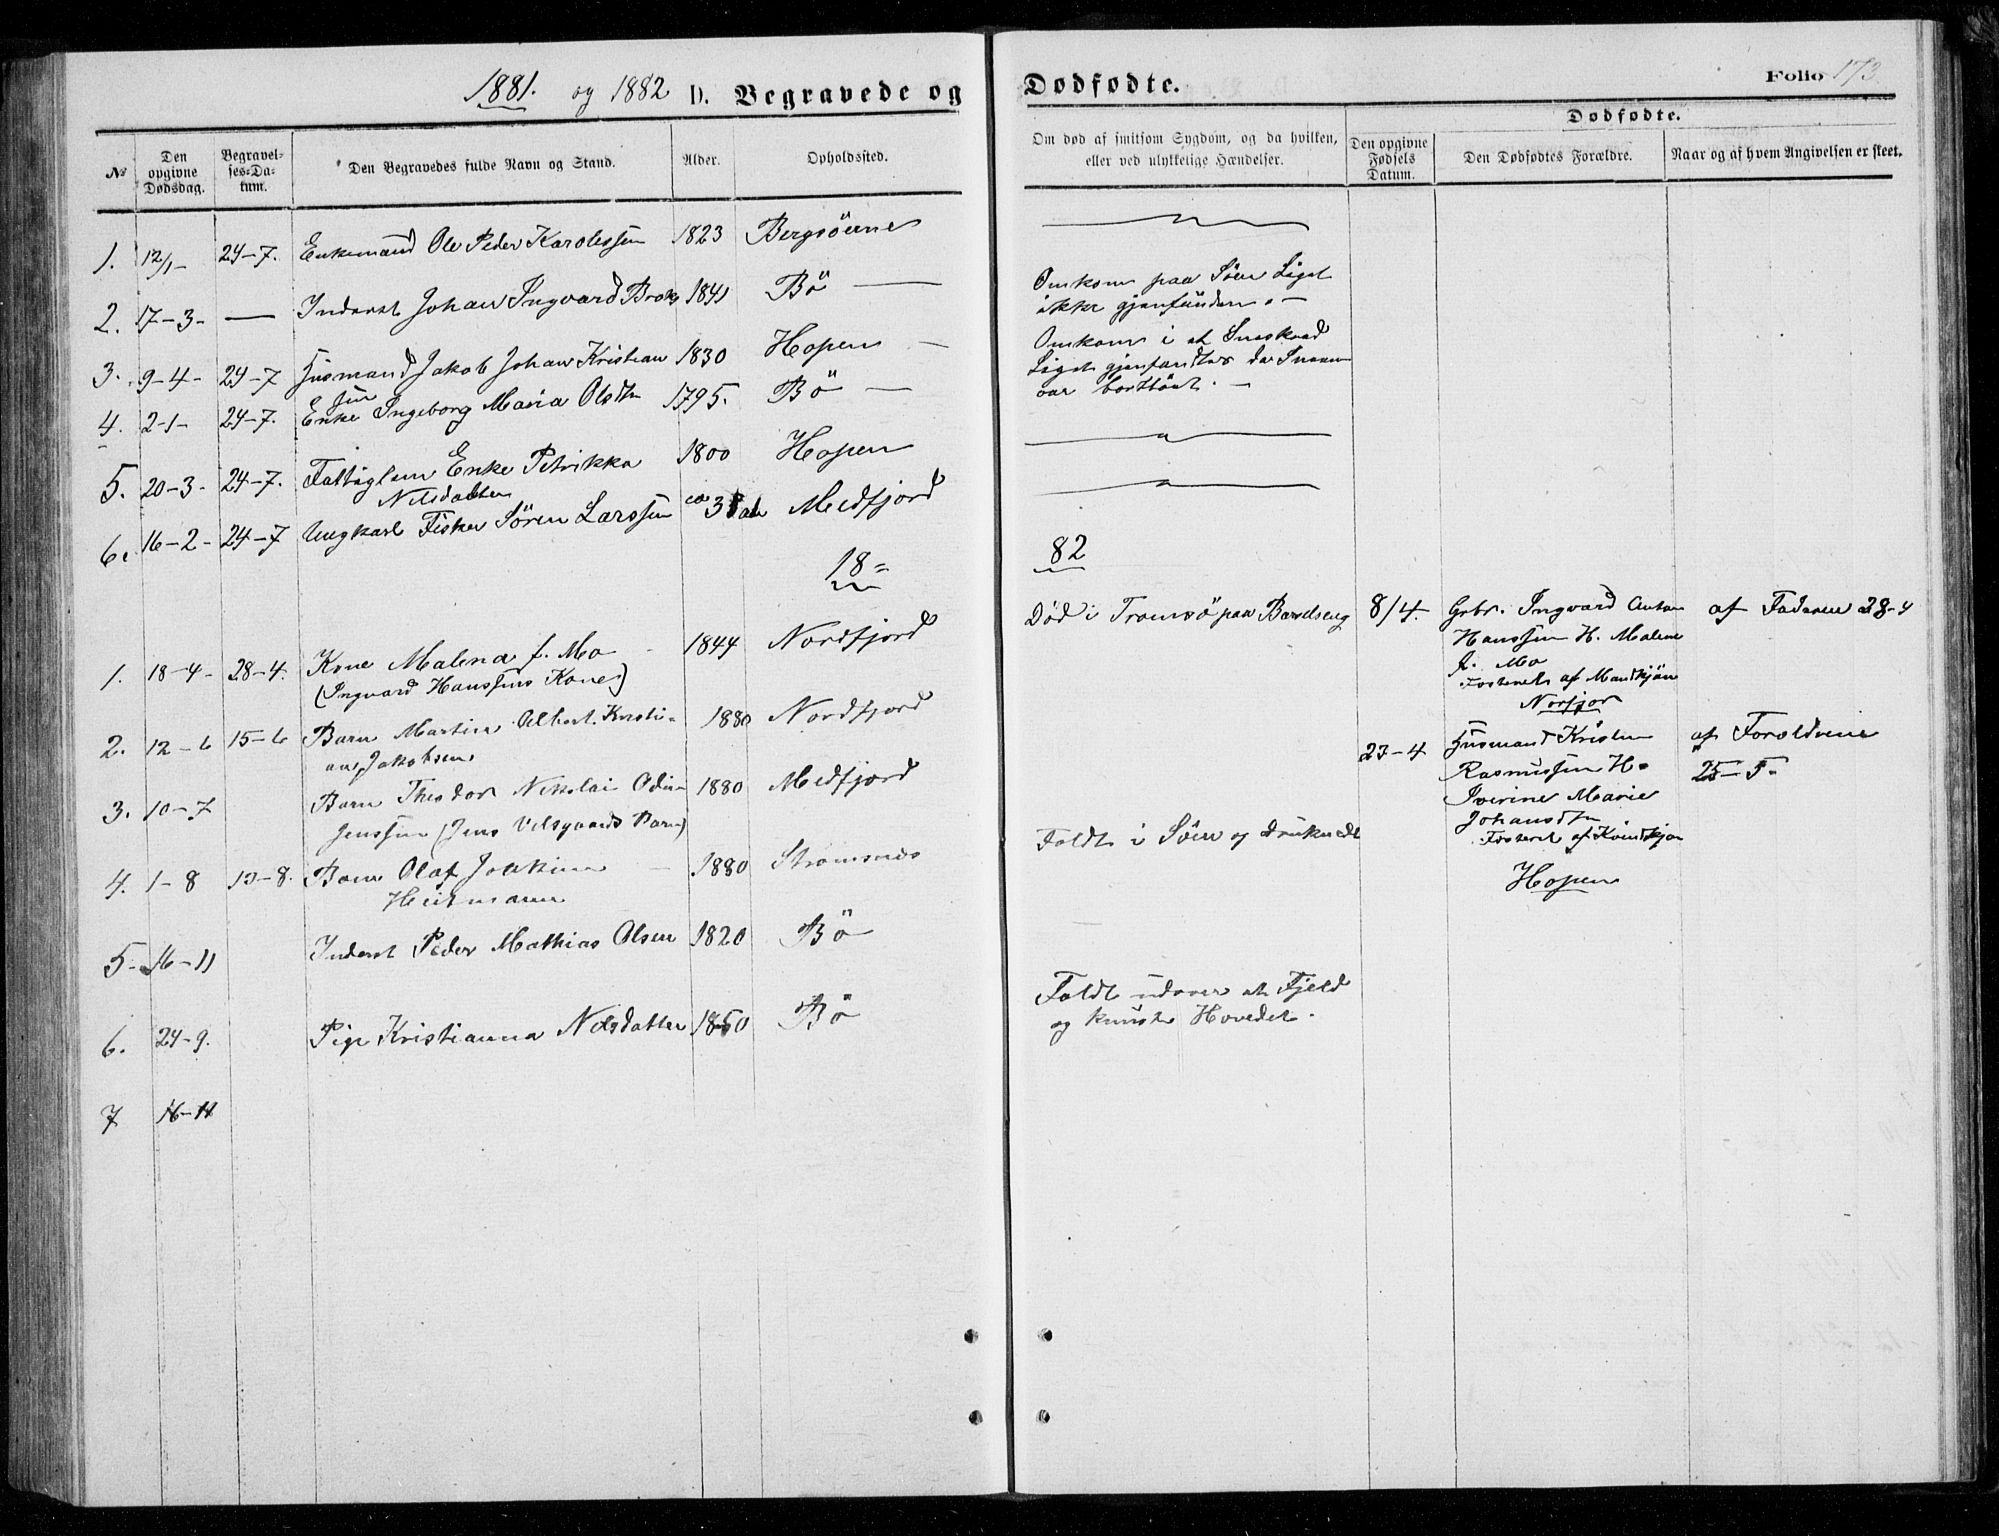 1881. og 1882 D. Begravede og
Dødfødte.
Folio 173.
Nº
Den opgivne Dødsdag.
Begravelses-Datum.
Den Begravedes fulde Navn og Stand.
Alder.
Opholdssted.
Om død af smitsom Sygdom, og da hvilken, eller ved ulykkelige Hændelser.
Dødfødte.
Den opgivne Fødsels Datum.
Den Dødfødtes Forældre.
Naar og af hvem Angivelsen er skeet.
1. 12/1- 24-7. Enkemand Ole Peder Karolessen 1823 Bergsöerne
2. 17-3- — Inderst Johan Ingvard 1841 Bö —
Omkom paa Söen Liget
ikke gjenfunden. —
3. 9-4- 24-7 Husmand Jakob Johan Kristian 1830 Hopen —
sen
Omkom i et Sneskred
Liget gjenfandtes da Sneen
var borttöet. —
4. 2-1- 24-7. Enke Ingeborg Maria Olsdtn 1795. Bö —
5. 20-3- 24-7. Fattiglem Enke Petrikka 1800 Hopen
Nilsdatter
6. 16-2- 24-7 Ungkarl Fisker Sören Larssen ca Medfjord
18=
82
1. 18-4- 28-4. Kone Malena f. Mo 1844 Nordfjord
(Ingvard Hanssens Kone)
Död i Tromsö paa Barselseng
8/4. Gbr. Ingvard Anton
Hanssen H. Malene
f. Mo
Fosteret af Mandkjön
Norfjor
af Faderen 28-4
2. 12-6 15-6 Barn Martin Albert Kristi-
an Jakobsen
1880 Nordfjord
23-4 Husmand Kristen
Rasmussen H=
Iverine Marie
Johansdtn
Fosteret af Kvindkjön
Hopen
af Foreldrene
25-5-
3. 10-7 Barn Theodor Nikolai Odin 1880 Medfjord
Jenssen (Jens Velsgaards Barn)
Faldt i Söen og druknede
4. 1-8 13-8. Barn Olaf Joakim 1880 Strömsnes
Heitmann
5- 16-11 Inderst Peder Mathias Olsen 1820 Bö
6. 24-9. Pige Kristianna Nilsdatter 1850 Bö
Faldt udover et Fjeld
og knuste Hovedet.
7 16-11